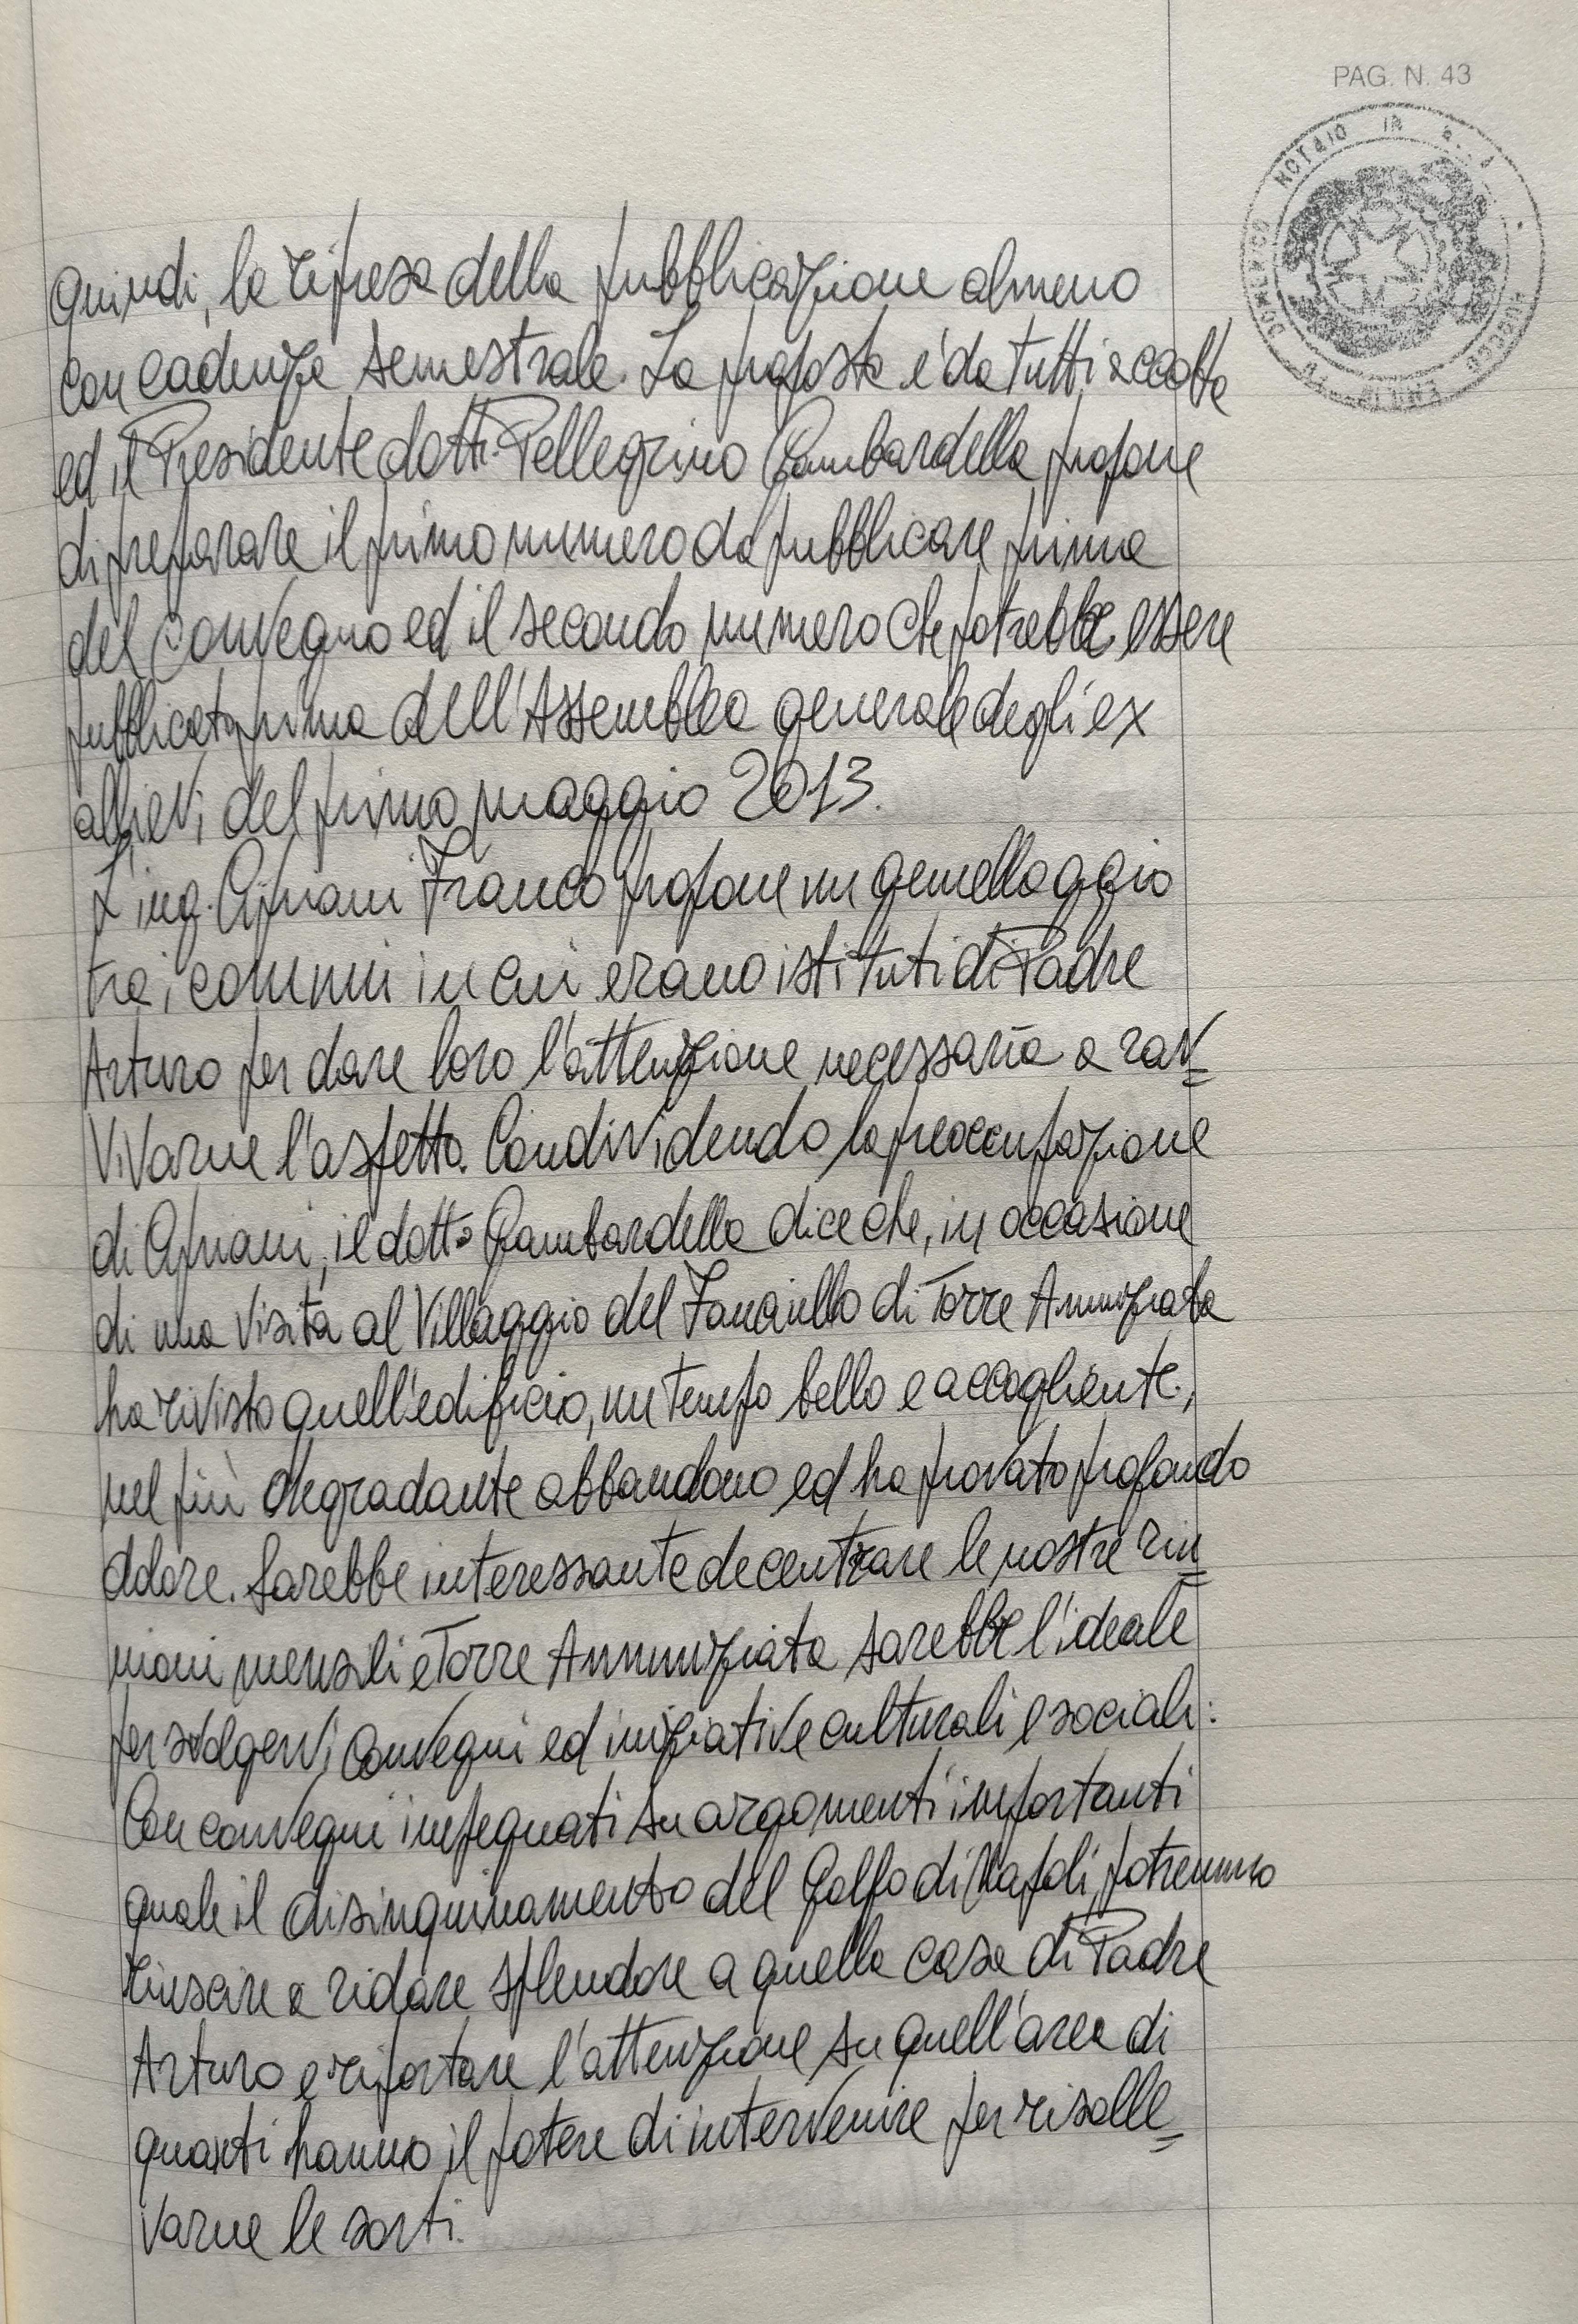 PAG. N. 43
NOTAIO IN
quindi, la ripresa della pubblicazione almeno
con cadenza semestrale. La proposta è da tutti accolta
ed il Presidente dott. Pellegrino Gambardella propone
di preparare il primo numero da pubblicare prima
del Convegno ed il secondo numero che potrebbe essere
pubblicato prima dell'Assemblea generale degli ex
allievi del primo maggio 2013.
L'ing. Cipriani Franco propone un gemellaggio
tra i comuni in cui erano istituti di Padre
Arturo per dare loro l'attenzione necessaria a rav=
vivarne l'aspetto. Condividendo la preoccupazione
di Cipriani, il dott. Gambardella dice che, in occasione
di una visita al Villaggio del Fanciullo di Torre Annunziata
ha rivisto quell'edificio, un tempo bello e accogliente,
nel più degradante abbandono ed ha provato profondo
dolore. Sarebbe interessante decentrare le nostre riu=
nioni mensili e Torre Annunziata sarebbe l'ideale
per svolgervi convegni ed iniziative culturali e sociali:
Con convegni impegnati su argomenti importanti
quale il disinquinamento del Golfo di Napoli, potremmo
riuscire a ridare splendore a quella casa di Padre
Arturo e riportare l'attenzione su quell'area di
quanti hanno il potere di intervenire per risolle=
varne le sorti.